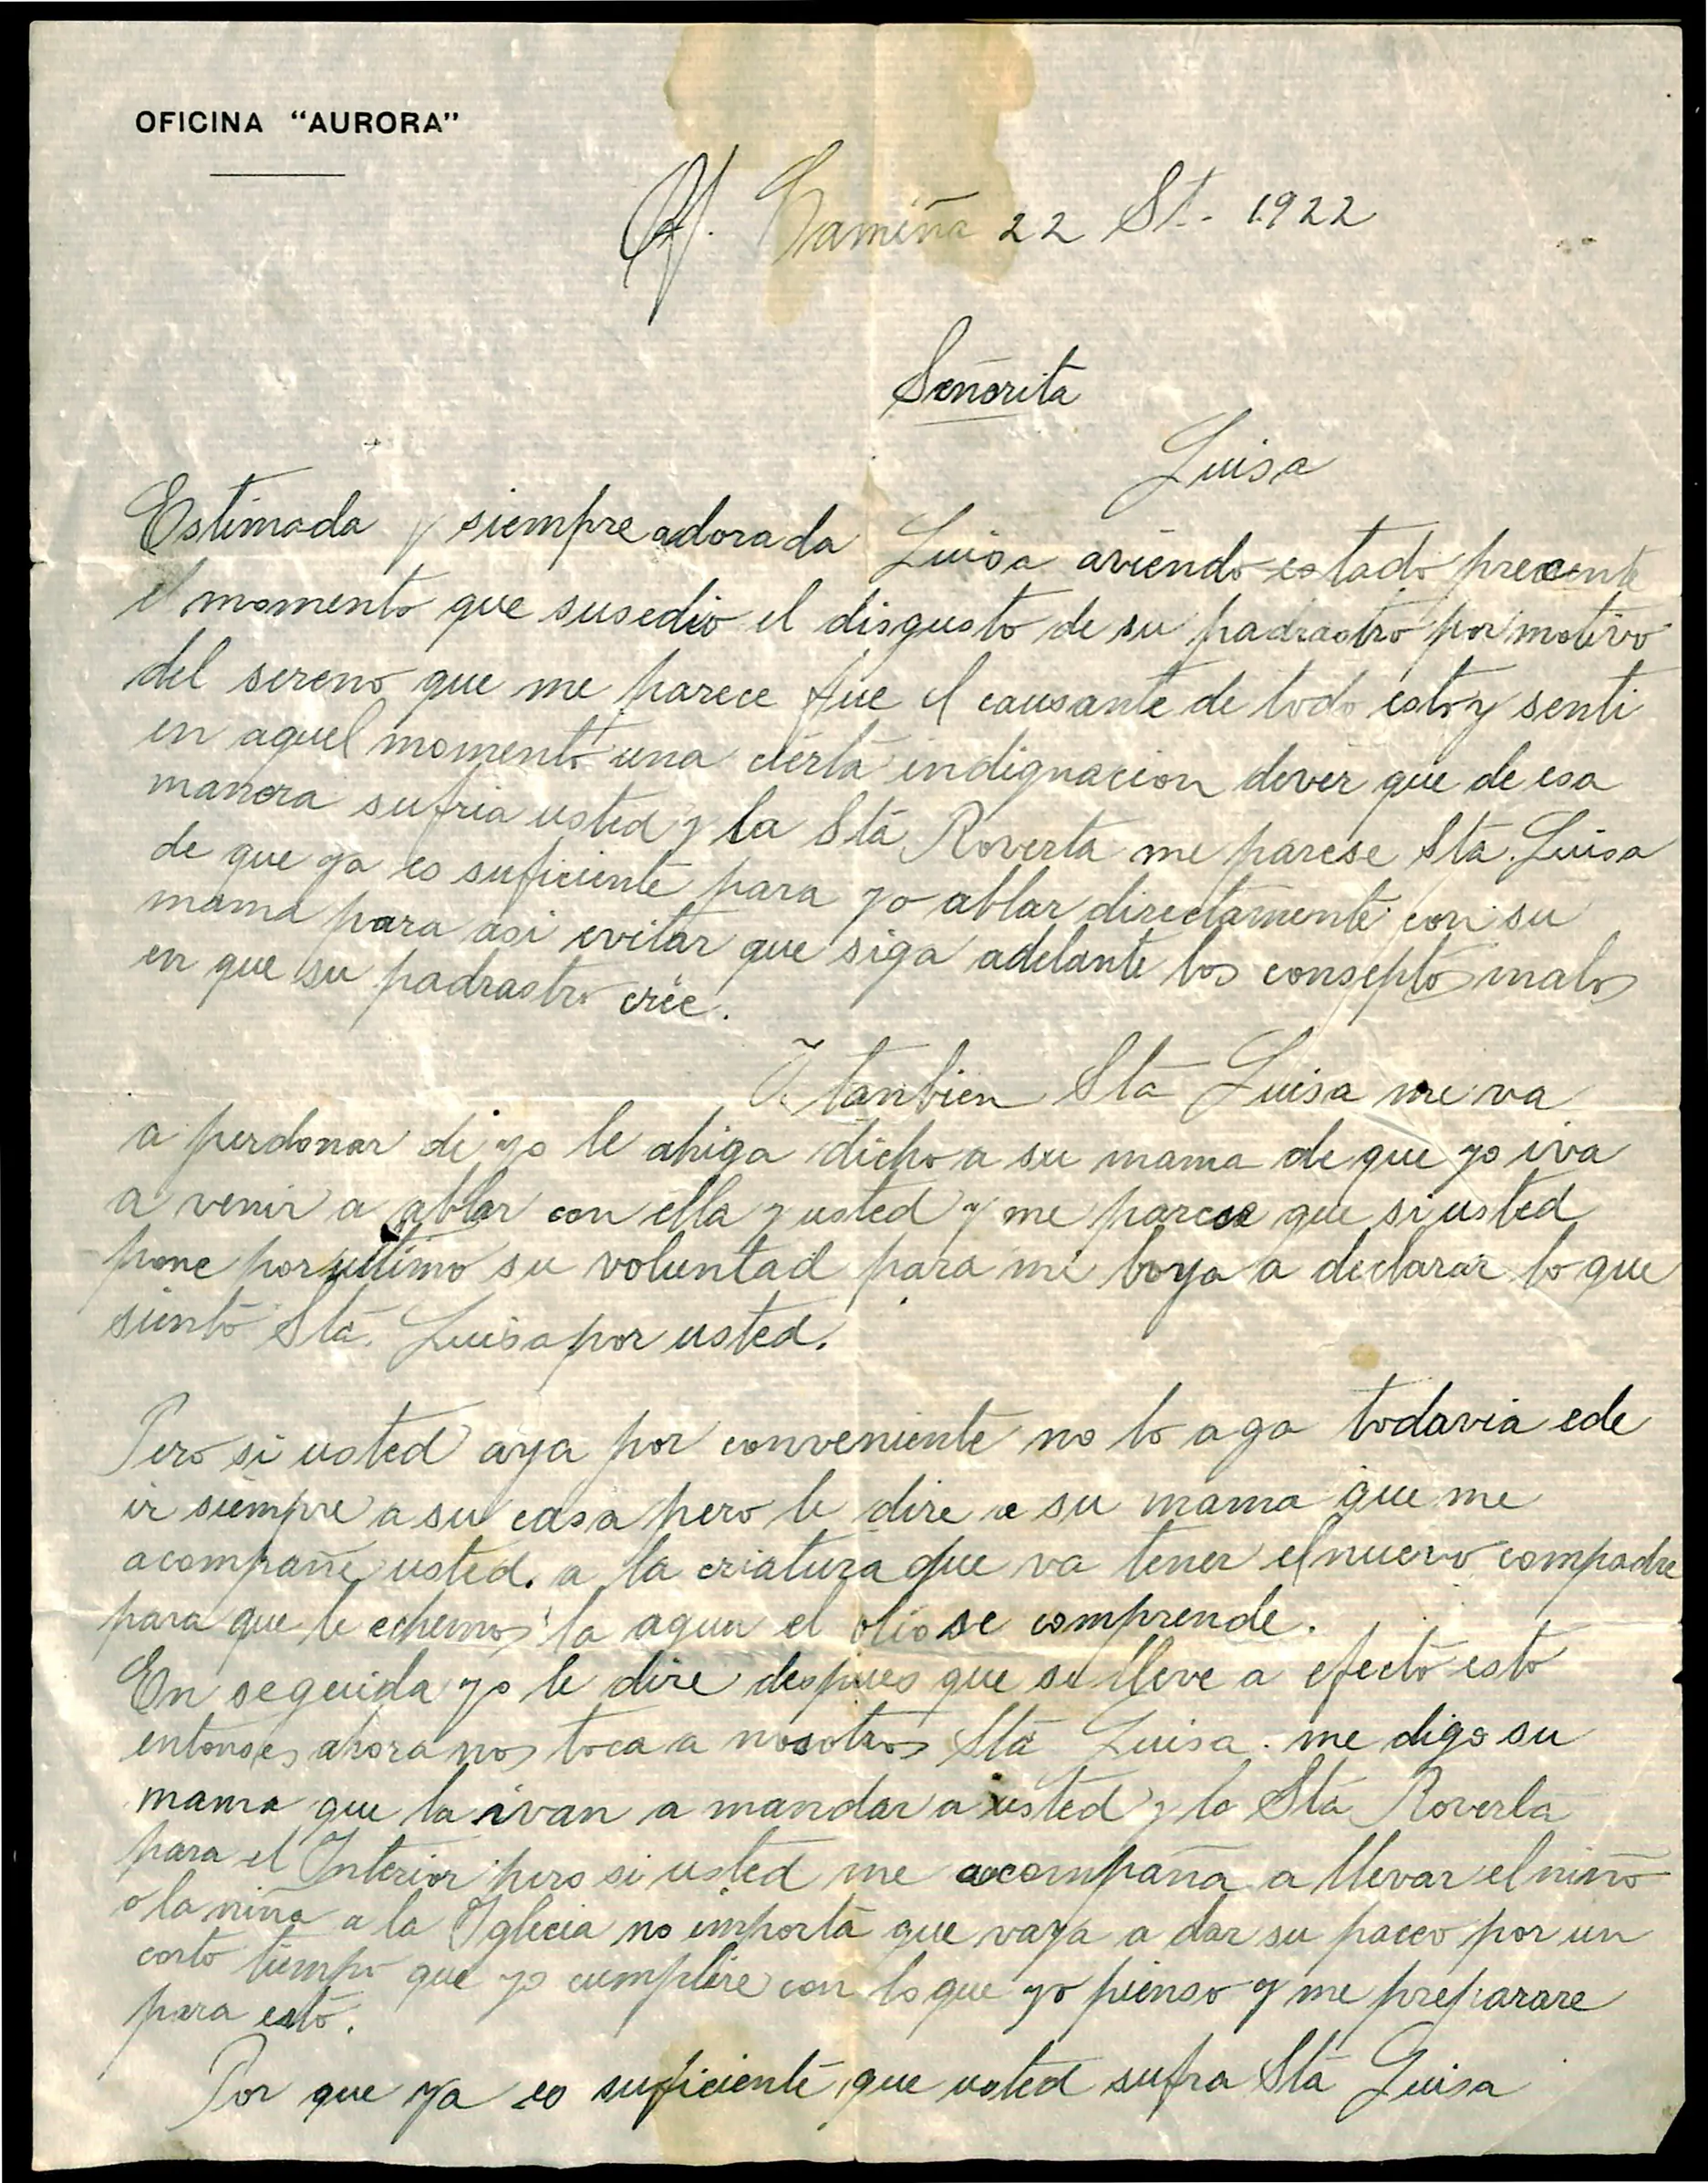 OFICINA "AURORA"
Of. Camiña 22 St. 1922
Señorita
Luisa
Estimada y siempre adorada Luisa aviendo estado precente
el momento que susedio el disgusto de su padrastro por motivo
del sereno que me parece fue el causante de todo esto y senti
en aquel momento una cierta indignacion dever que de esa
manera sufria usted y la Sta Roverta me parese Sta. Luisa
de que ya es suficiente para yo ablar directamente con su
mama para asi evitar que siga adelante los conseptos malos
en que su padrastro crée.
I tanbien Sta Luisa me va
a perdonar de yo le ahiga dicho a su mama de que yo iva
a venir a ablar con ella y usted y me parece que si usted
pone por ultimo su voluntad para mi boya a declarar lo que
siento Sta. Luisa por usted.
Pero si usted aya por conveniente no lo aga todavia ede
ir siempre a su casa pero le dire a su mama que me
acompañe usted. a la criatura que va tener el nuevo compadre
para que le echemos la agua el olio se comprende.
En seguida yo le dire despues que se lleve a efecto esto
entonses ahora nos toca a nosotros Sta Luisa. me digo su
mama que la ivan a mandar a usted y la Sta Roverla
para el Interior pero si usted me acompaña a llevar el niño
o la niña a la Iglecia no importa que vaya a dar su paceo por un
corto tiempo que yo cumplire con lo que yo pienso y me preparare
para esto.
Por que ya es suficiente que usted sufra Sta Luisa